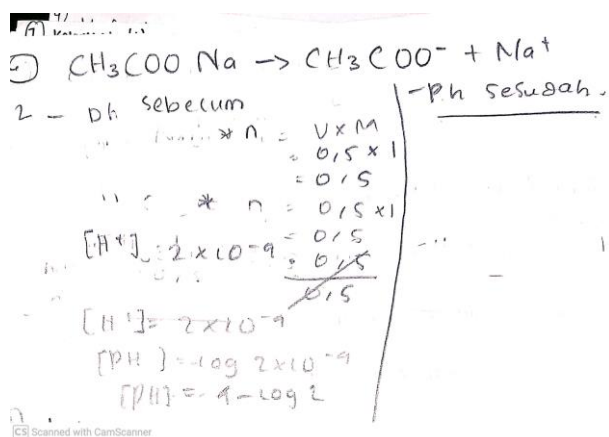 CH3COO Na -> CH3COO⁻ + Na⁺
2 - Ph sebelum
* n = V x M
= 0,5 x 1
= 0,5
* n = 0,5 x 1
= 0,5
[H+] = 2 x 10-9 = 0,5
0,5
[H+] = 2x10-9
[PH] = -log 2x10-9
[PH] = 9 - log 2
- Ph sesudah.
CS Scanned with CamScanner